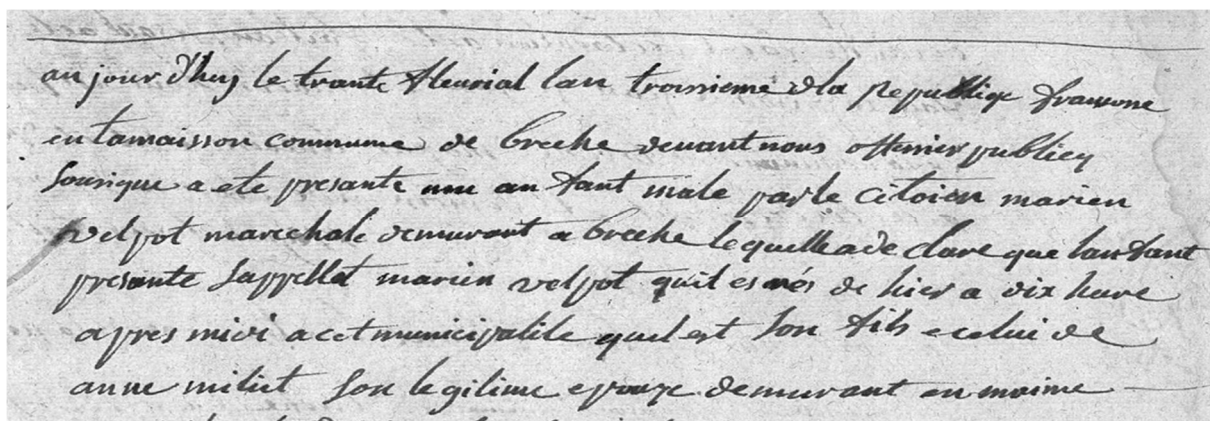 aujour d'huy le trante fleurial lan troisieme d la Republiqe fransone
en lamaisson commume de breche devant nous offenier publicq
Sousigne a ete presante une anfant male parle citoien marien
velpot marechale demurant a breche lequelle a de clare que lanfant
presante Sappellet marien velpot quil es nés de hier a dix heure
apres midi a cet municipalite quel est Son fils e celui de
anne miliet Son legitime epouze demurant en maime